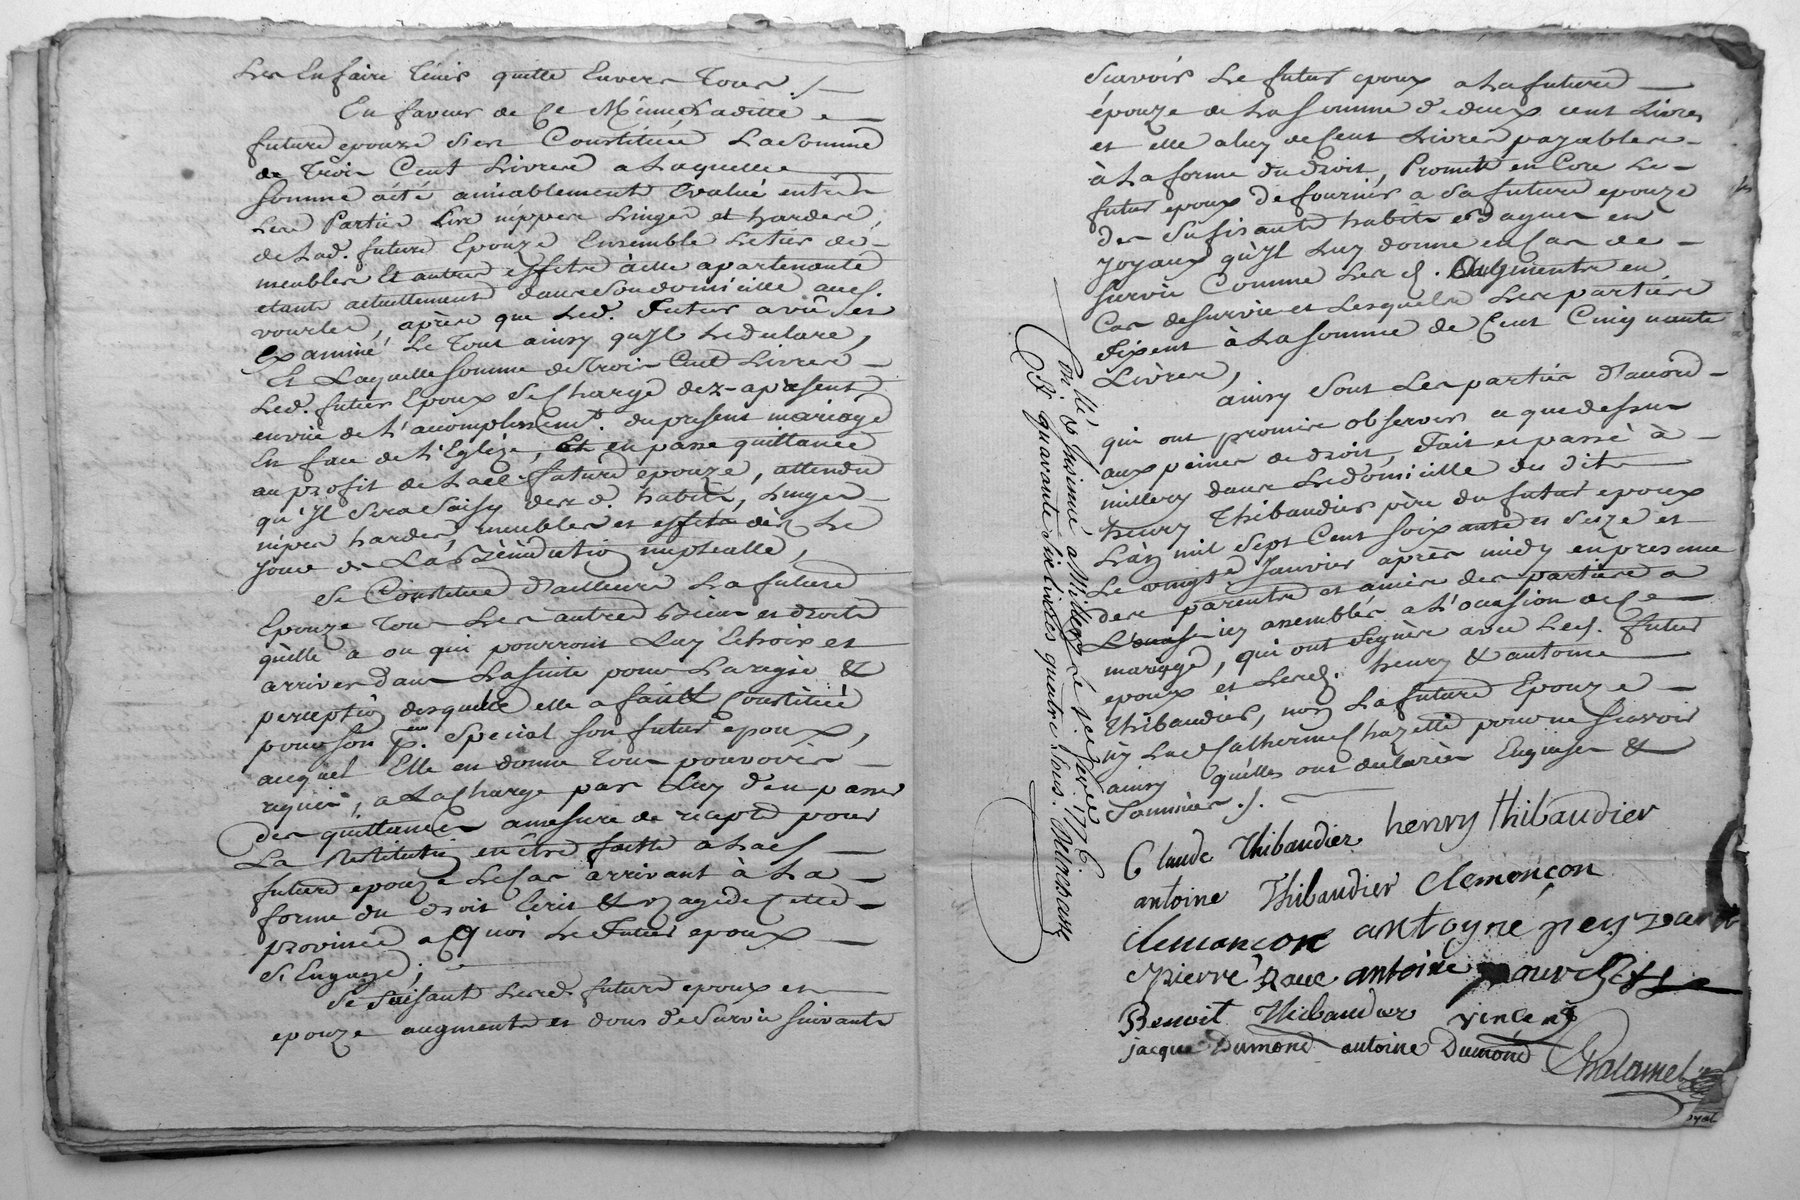 Les En faire Tenir quitte Envers Tous ./.
En faveur de Ce Même Laditte
future epouze s'est Constituée La Somme
de Trois Cent Livres a Laquelle
Somme a été amiablement Evalué entre
Les Parties Les nippes Linges et hardes
de Lad. future Epouze Ensemble Letier de
meubles Et autres effets à elle apartenants
etant actuellement dans Son domicille auxd.
vourles, après que Led. Futur a vû et
Examiné Le Tout ainsy qu'Jl Le declare,
Et Laquelle Somme de Trois Cent Livres
Led. futur Epoux Se Charge dez-aprésent
en vüe de L'acomplissem.t du présent mariage
En face de L'Eglize, Et en passe quittance
au profit de Lad. future epouze, attendu
qu'Jl Sera Saisy desd. habits, Linges
nipes hardes, meubles et effets dès Le
Jour de La Bénédiction nuptialle,
Se Constitue D'ailleurs La future
Epouze Tous Les autres Biens et droits
qu'elle a ou qui pourront Luy Echoir et
arriver dans La Suite pour La regie &
perception desquels elle a fait & Constitué
pour Son p.eur Special Son futur epoux,
auquel Elle en donne Tous pouvoirs
requis, a La Charge par Luy d'en passer
des quittances amesure de recepte pour
La Restitution en être faitte a Lad.
future epouze Le Cas arrivant à La
forme du droit Ecrit & uzagé de Cette
province a Quoi Le Futur epoux
S'Engage;
Se Faisant Lesd. futurs epoux et
epouze augments et dons de Survie Suivants
Scavoir Le futur epoux a La future
épouze de La Somme de deux cent Livres
et elle a luy de Cent Livres payables
à La forme du droit, Promet en Core Le
futur epoux de fournir a Sa future epouze
des Sufisants habits et bagues et
Joyaux qu'Jl Luy donne en Cas de
Survie Comme Lesd. Augments en
Cas de Survie et Lesquels Les parties
Fixent à La Somme de Cent Cinquante
Livres,
ainsy Sont Les parties D'accord
qui ont promis observer ce que dessus
aux peines de droit, Fait et passé à
millery dans Le domicille du dit
henry Thibaudier père du futur epoux
L'an mil Sept Cent Soixante et Seize et
Le vingt Janvier après midy en presence
des parents et amis des parties a
L'acause icy assemblés a L'occasion de Ce
mariage, qui ont Signés avec Led. futur
epoux et Lesd. henry & antoine
Thibaudier, non La future Epouze
ny Lad. Catherine Chazette pour ne Scavoir
ainsy qu'elles ont declarées Enquises &
Sommées ./.
Claude Thibaudier henry thibaudier
antoine Thibaudier Clemençon
Clemançon antoyne
pierre antoine
Benoit Thibaudier vincent
jacque Dumond antoine Dumond
Chalamel
Con.llé & Jnsinué à Millery Le 1.er fevrier 1776
R. quarante Six livres quatre Sous.